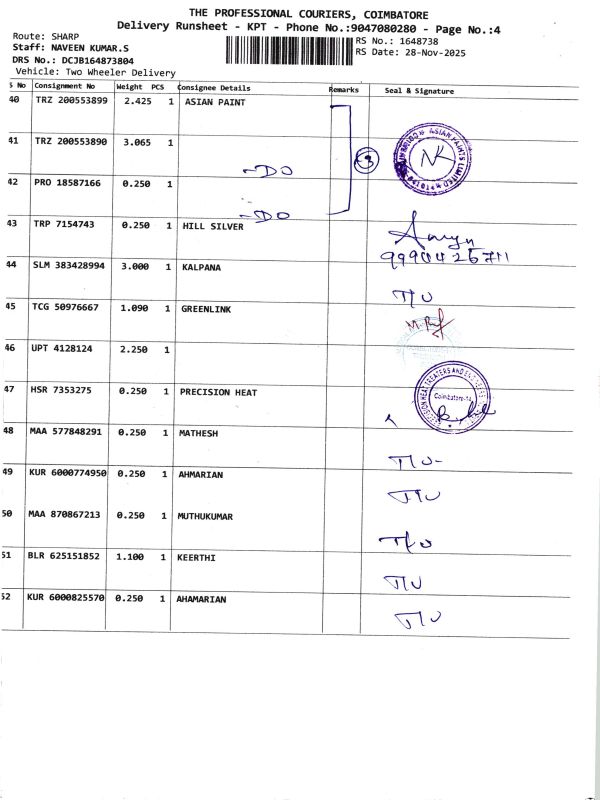 THE PROFESSIONAL COURIERS, COIMBATORE
Delivery Runsheet - KPT - Phone No.:9047080280 - Page No.:4
Route: SHARP
RS No.: 1648738
Staff: NAVEEN KUMAR.S
RS Date: 28-Nov-2025
DRS No.: DCJB164873804
Vehicle: Two Wheeler Delivery
S No Consignment No Weight PCS Consignee Details Remarks Seal & Signature
40 TRZ 200553899 2.425 1 ASIAN PAINT
41 TRZ 200553890 3.065 1
-DO
3
42 PRO 18587166 0.250 1
-DO
43 TRP 7154743 0.250 1 HILL SILVER
44 SLM 383428994 3.000 1 KALPANA
T/U
45 TCG 50976667 1.090 1 GREENLINK
46 UPT 4128124 2.250 1
47 HSR 7353275 0.250 1 PRECISION HEAT
Coimbatore-14
48 MAA 577848291 0.250 1 MATHESH
T/U-
49 KUR 6000774950 0.250 1 AHMARIAN
T/U
50 MAA 870867213 0.250 1 MUTHUKUMAR
T/U
51 BLR 625151852 1.100 1 KEERTHI
T/U
52 KUR 6000825570 0.250 1 AHAMARIAN
T/U